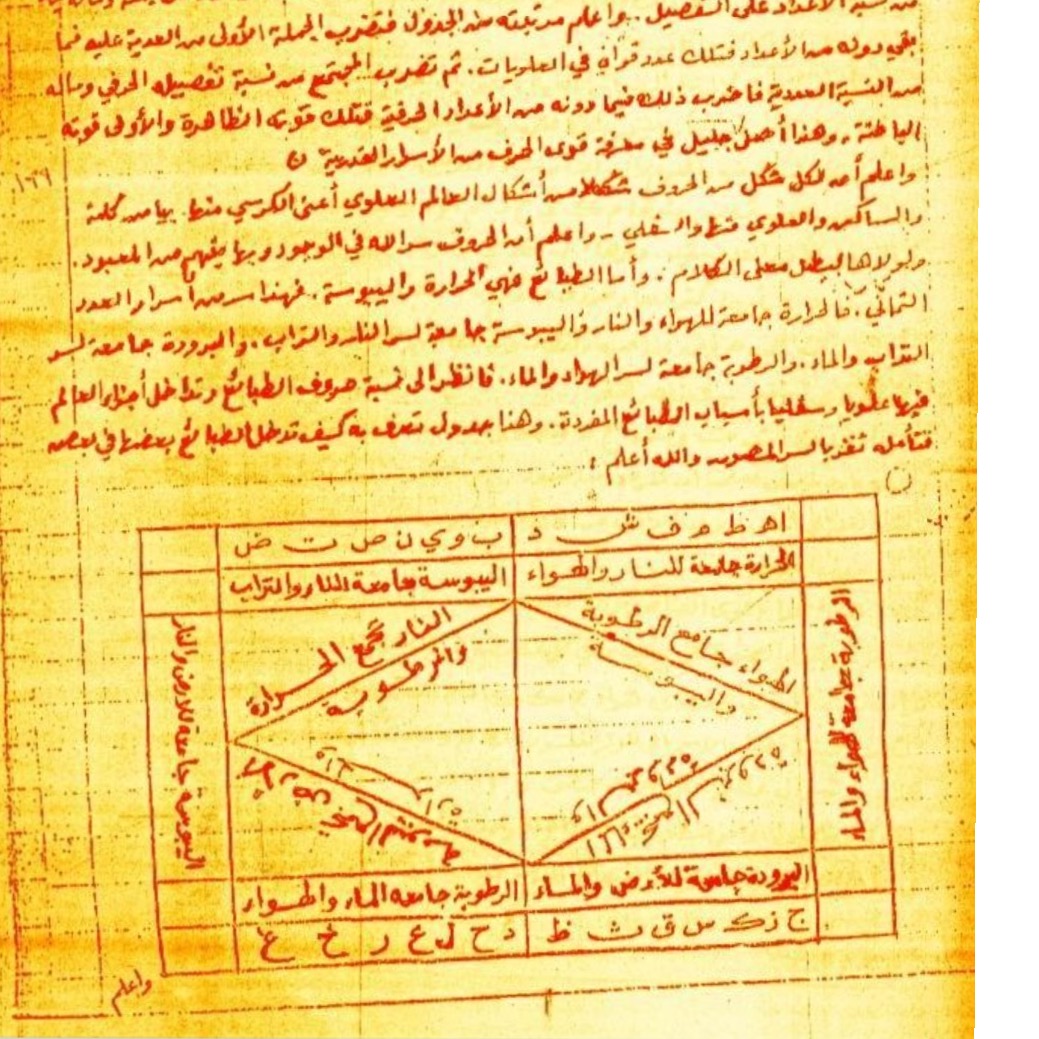 من نسبة الأعداد على التفصيل . واعلم مرتبته من الجدول فتضرب الجملة الأولى من العددية عليه فما
بقي دوله من الأعداد فتلك عدد قواه في العلويات . ثم تضرب المجتمع من نسبة تفصيله الحرفي وماله
من النسبة العددية فاضرب ذلك فيما دونه من الأعداد الحرفية فتلك قوته الظاهرة والأولى قوته
الباطنة . وهذا أصل جليل في معرفة قوى الحرف من الأسرار القدرية
١٦٩
واعلم أن لكل شكل من الحروف شكلا من أشكال العالم العلوي أعني الكرسي منها
والساكن والعلوي منها والسفلي . واعلم أن الحروف سر الله في الوجود وبها يفهم من المعبود .
ولولاها لبطل معنى الكلام . وأما الطبائع فهي الحرارة واليبوسة . فهذا سر من أسرار العدد
الثماني ، فالحرارة جامعة للهواء والنار واليبوسة جامعة لسر النار والتراب . والبرودة جامعة لسر
التراب والماء . والرطوبة جامعة لسر الهواء والماء . فانظر الى نسبة حروف الطبائع وتداخل أجزاء العالم
فيها علويا وسفليا بأسباب الطبائع المفردة . وهذا جدول تعرف به كيف تدخل الطبائع بعضها في بعض
فتأمله تفز بالسر المصون والله أعلم :
ا هـ ط م ف ش د
ب و ي ن ص ت ض
الحرارة جامعة للنار والهواء
اليبوسة جامعة النار والتراب
الرطوبة جامعة للهواء والماء
الهواء جامع الرطوبة
واليبوسة
النار تجمع الحرارة
والرطوبة
اليبوسة جامعة للارض والنار
البرودة جامعة للأرض والماء
الرطوبة جامعه الماء والهواء
ج ز ك س ق ث ظ
د ح ل ع ر خ غ
واعلم